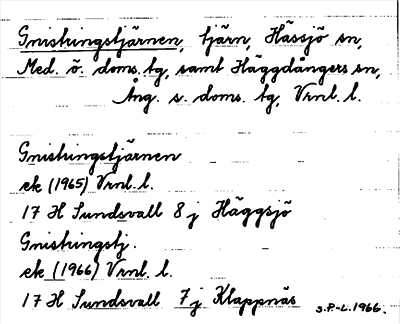 Gnistringstjärnen, tjärn, Hässjö sn,
Med. ö. doms. tg, samt Häggdångers sn,
Ång. s. doms. tg, Vrnl. l.
Gnistringstjärnen
ek (1965) Vrnl. l.
17 H Sundsvall 8 j Häggsjö
Gnistringstj.
ek (1966) Vrnl. l.
17 H Sundsvall 7 j Klappnäs
S.P-L. 1966.